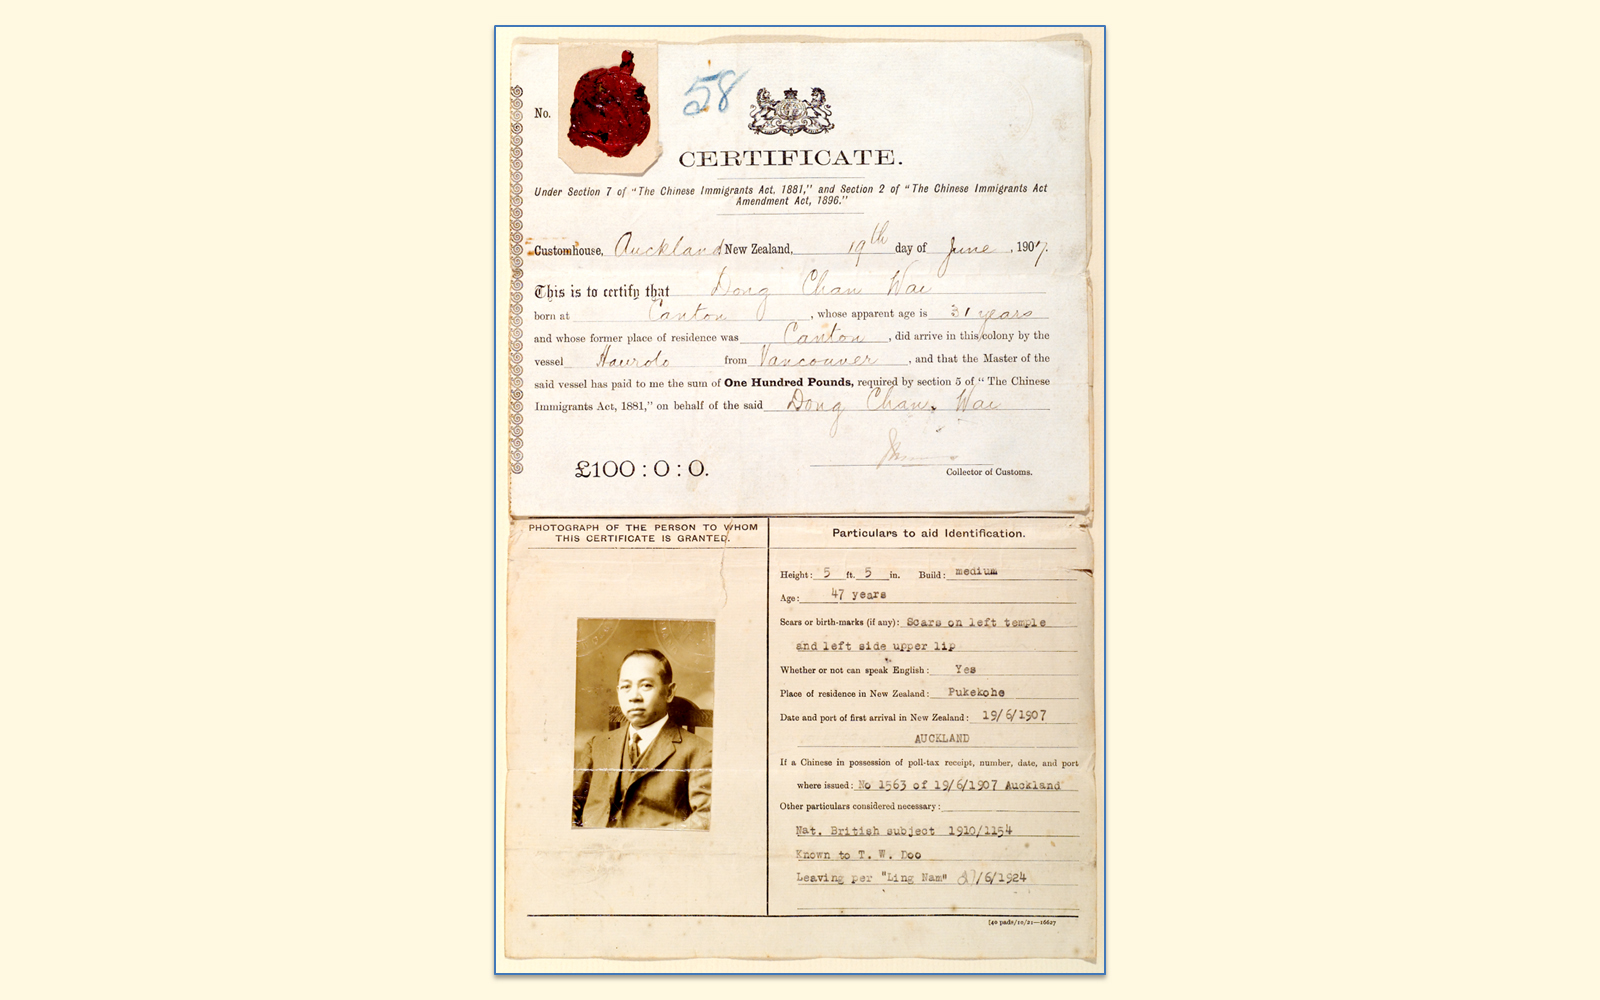 58
No.
CERTIFICATE.
Under Section 7 of "The Chinese Immigrants Act, 1881," and Section 2 of "The Chinese Immigrants Act
Amendment Act, 1896."
Customhouse, Auckland New Zealand, 19th day of June, 1907.
This is to certify that Dong Chan Wai
born at Canton, whose apparent age is 31 years
and whose former place of residence was Canton, did arrive in this colony by the
vessel from Vancouver, and that the Master of the
said vessel has paid to me the sum of One Hundred Pounds, required by section 5 of "The Chinese
Immigrants Act, 1881," on behalf of the said Dong Chan Wai
£100 : 0 : 0.
Collector of Customs.
PHOTOGRAPH OF THE PERSON TO WHOM
THIS CERTIFICATE IS GRANTED.
Particulars to aid Identification.
Height: 5 ft. 5 in. Build: medium
Age: 47 years
Scars or birth-marks (if any): Scars on left temple
and left side upper lip
Whether or not can speak English: Yes
Place of residence in New Zealand: Pukekohe
Date and port of first arrival in New Zealand: 19/6/1907
AUCKLAND
If a Chinese in possession of poll-tax receipt, number, date, and port
where issued: No 1563 of 19/6/1907 Auckland
Other particulars considered necessary:
Nat. British subject 1910/1154
Known to T. W. Doo
Leaving per "Ling Nam" /6/1924
[40 pads/10/21—16627